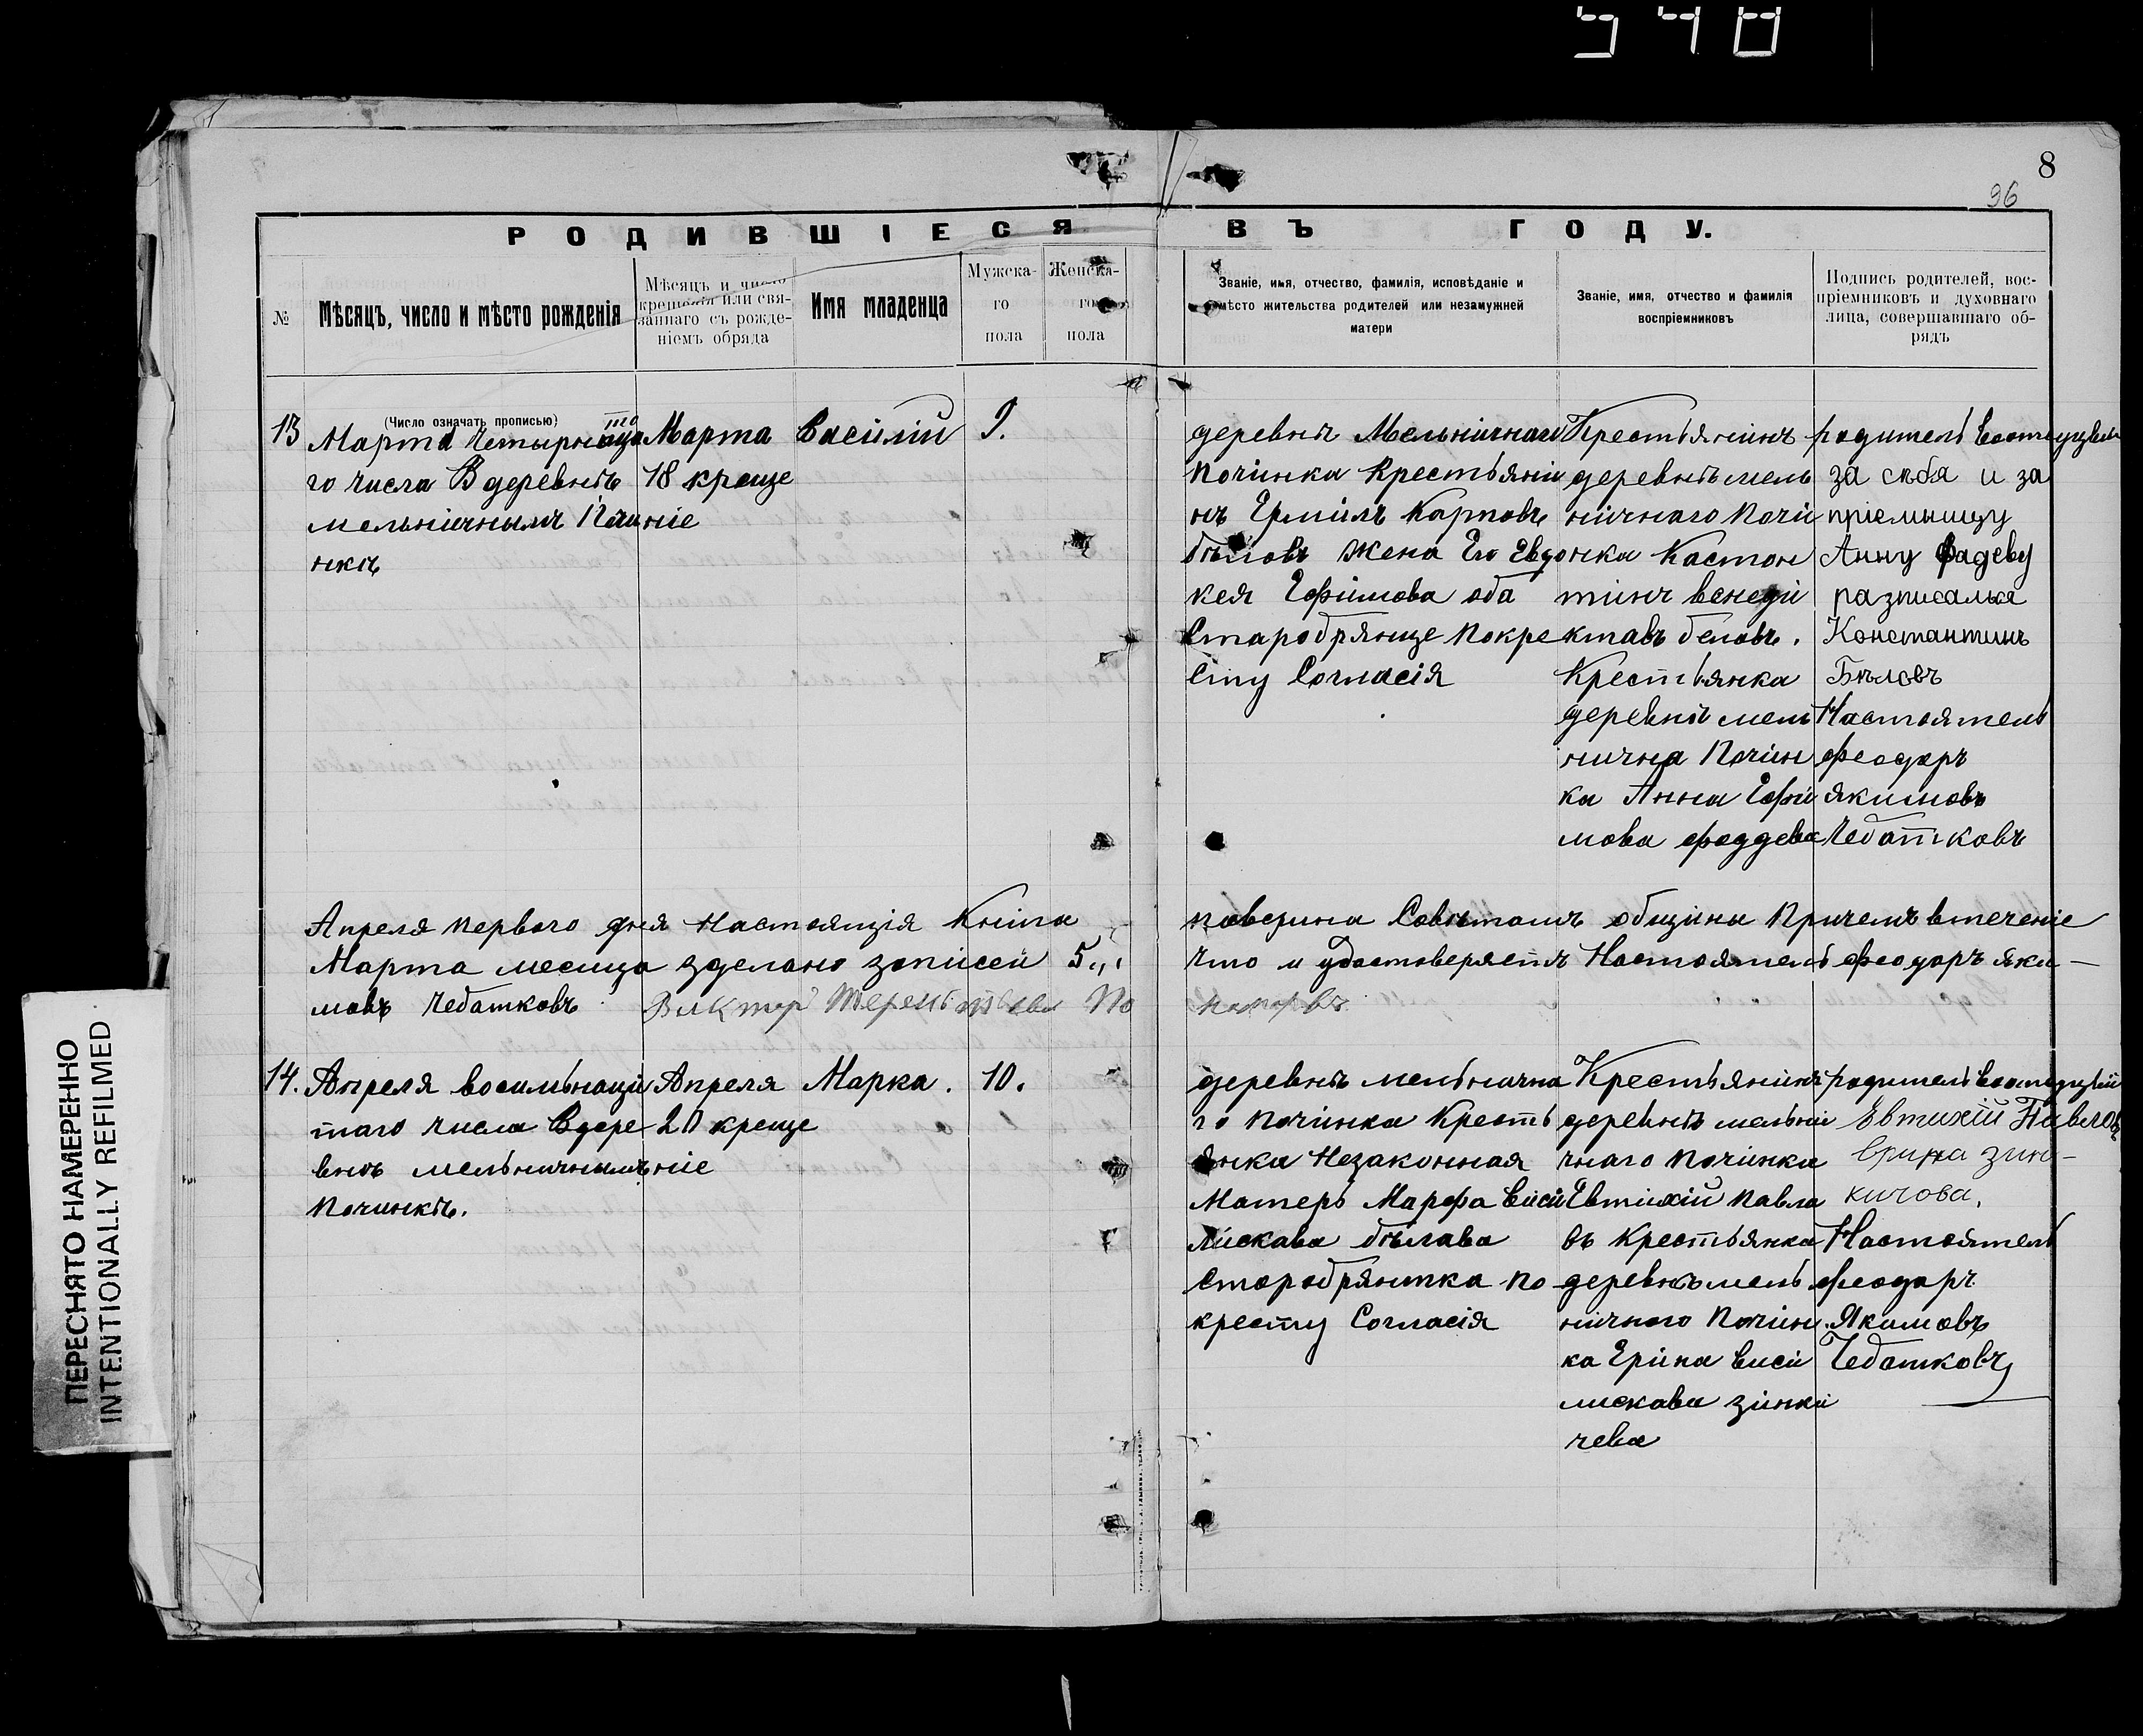 548
8
96
РОДИВШІЕСЯ ВЪ ГОДУ.
№
Мѣсяцъ, число и мѣсто рожденія
Мѣсяцъ и число
крещенія или свя-
заннаго съ рожде-
ніемъ обряда
Имя младенца
Мужска-
го
пола
Женска-
го
пола
Званіе, имя, отчество, фамилія, исповѣданіе и
мѣсто жительства родителей или незамужней
матери
Званіе, имя, отчество и фамилія
воспріемниковъ
Подпись родителей, вос-
пріемниковъ и духовнаго
лица, совершавшаго об-
рядъ
(Число означать прописью)
13
Марта Четырнаца
то
го числа В деревнѣ
мельнічнымъ Почи
нкѣ
Марта
18 креще
ніе
Васілій
9.
деревня Мельнічнаго
Почінка Крестьянін
нъ Ермілъ Карповъ
бѣловъ Жена Его Евдо
кея Ефімова оба
Старобрянце Покре
сту Согласія
Крестьянінъ
деревнѣ мель
нічнаго Почі
нка Кастон
тинъ венеди
ктавъ беловъ.
Крестьянка
деревнѣ мель
нична Почін
ка Анна Ефи
мова фаддева
родитель
за себя и за
пріемницу
Анну Фадеву
разписалься
Константинъ
Бѣловъ
Настоятель
феодаръ
Якимовъ
Чебатковъ
Апреля первого дня Настоящія Кніга
Марта месица зделано записей 5.,,
мовъ Чебатковъ
Виктор Терентьевъ По
поверина Совѣтомъ общины Причемъ втеченіе
что и удостоверяетъ Настоятель феодаръ яки—
14.
Апреля восимьнаци
таго числа Вдере
внѣ мельничнымъ
Почінкѣ.
Апреля
20 креще
ніе
Марка.
10.
деревнѣ мельнична
го почінка Кресть
янка Незаконная
Матерь Марфа Васи
ліскава бѣлава
старобрянтка по
кресту Согласія
Крестьянінъ
деревнѣ мельні
чнаго Почінка
Евтихій Павла
въ Крестьянка
деревнѣ мель
нічного Почін
ка Ерина васи
лискава зінки
чева
родитель
Евтихій Павловъ
Ерина зин-
кичова.
Настоятель
феодаръ
Якимовъ
Чебатковъ
ПЕРЕСНЯТО НАМЕРЕННО
INTENTIONALLY REFILMED